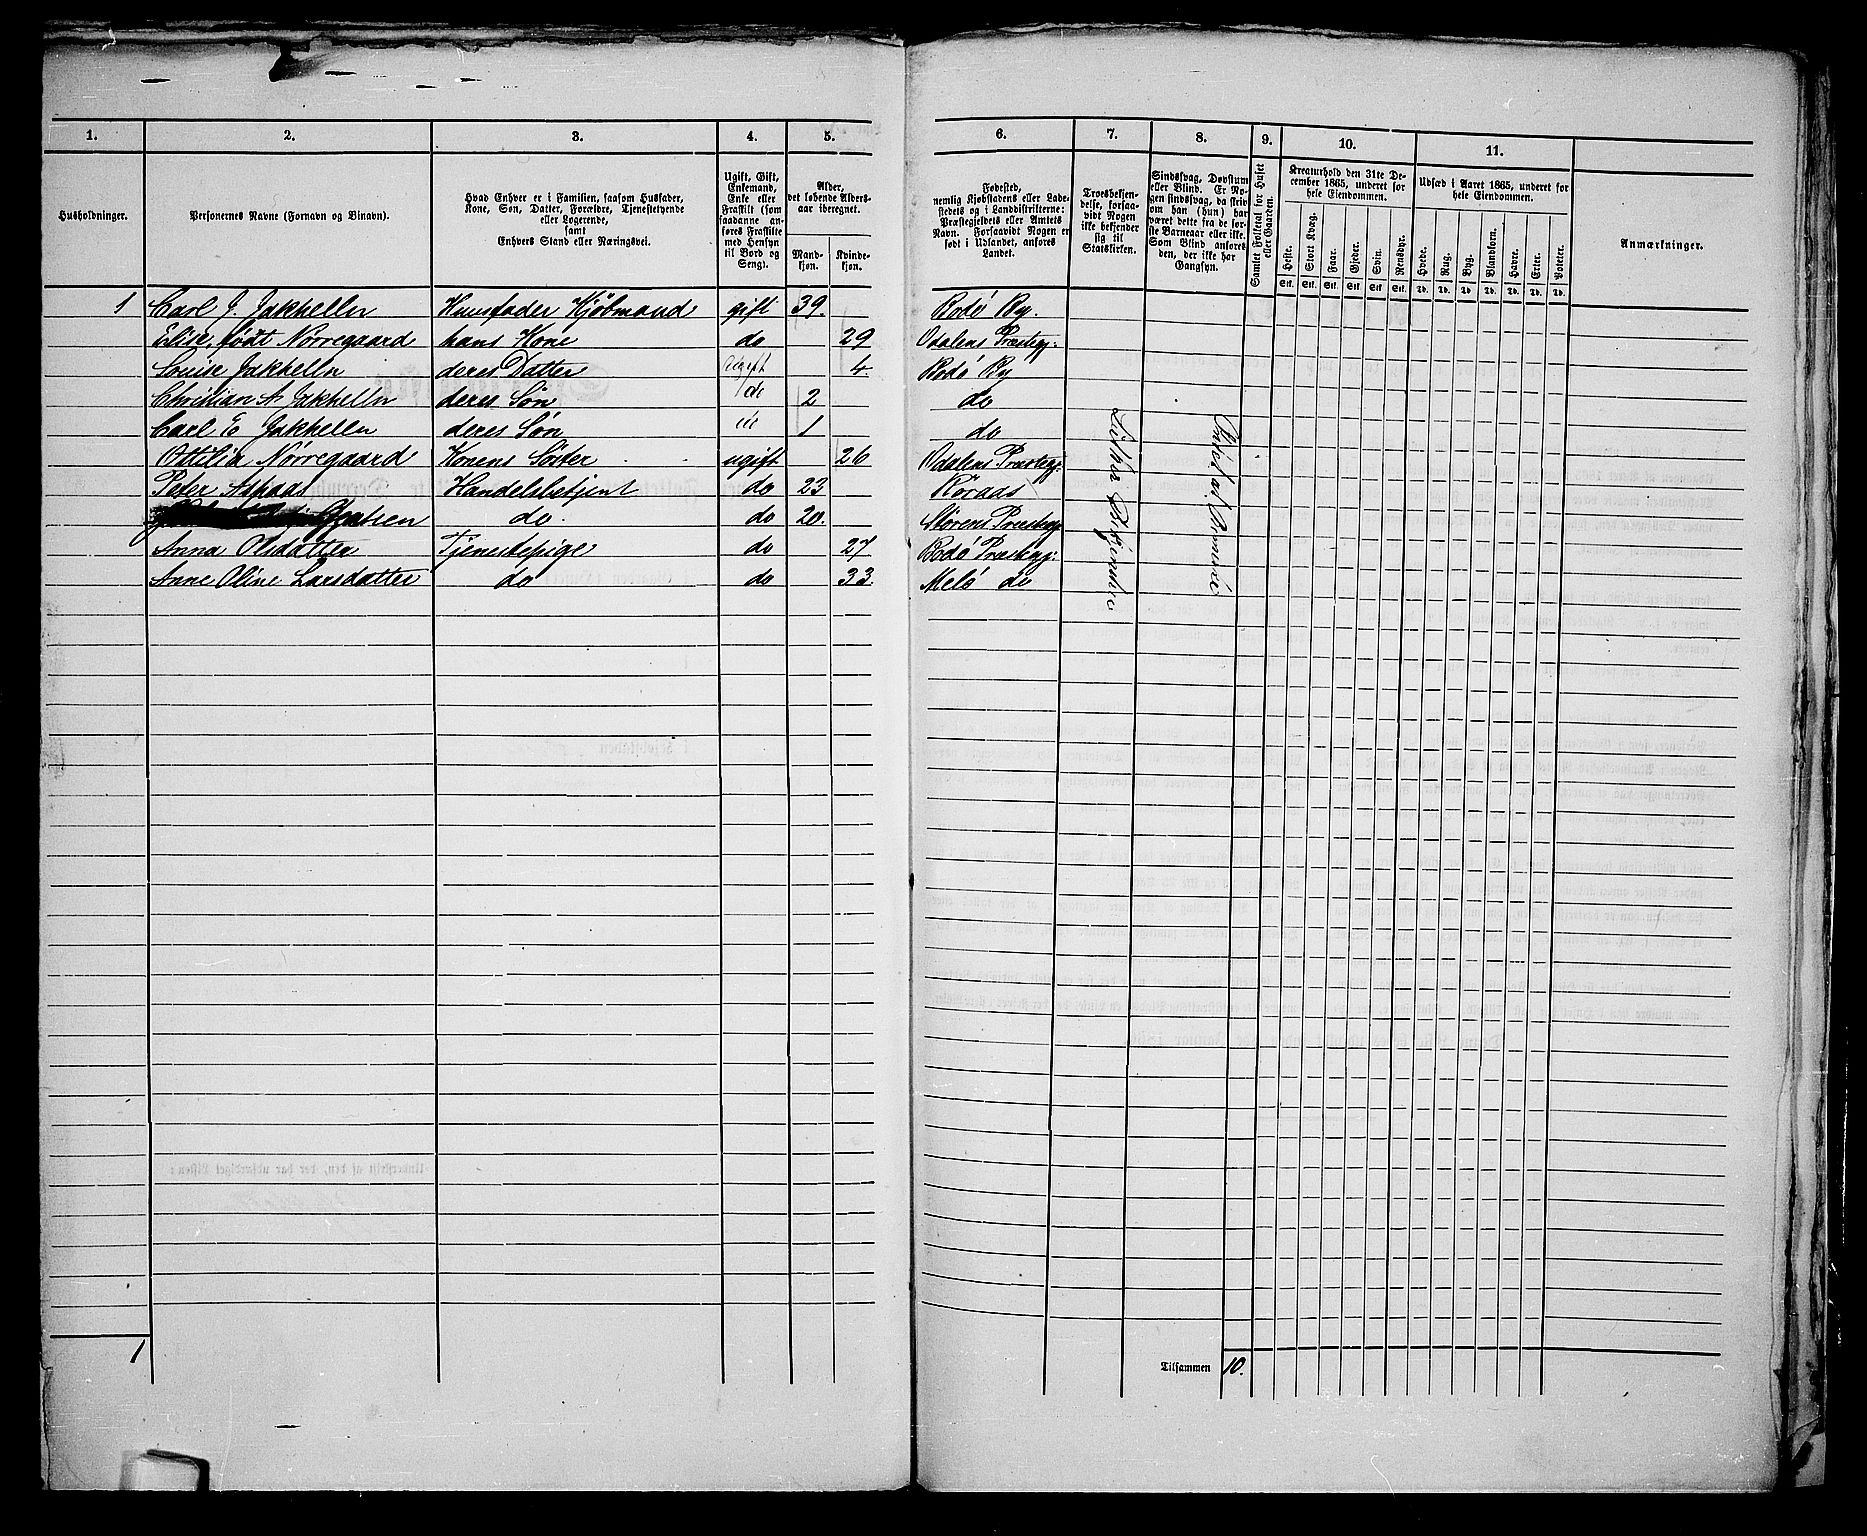 1. 2. 3. 4. 5. 6. 7. 8. 9. 10. 11.
Husholdninger.
Personernes Navne (Fornavn og Binavn).
Hvad Enhver er i Familien, saasom Husfader,
Kone, Søn, Datter, Forældre, Tjenestetyende
eller Logerende,
samt
Enhvers Stand eller Næringsvei.
Ugift, Gift,
Enkemand,
Enke eller
Fraskilt (som
saadanne an-
føres Fraskilte
med Hensyn
til Bord og
Seng).
Alder,
det løbende Alders-
aar iberegnet.
Mand-
kjøn.
Kvinde-
kjøn.
Fødested,
nemlig Kjøbstadens eller Lade-
stedets og i Landdistrikterne:
Præstegjeldets eller Amtets
Navn. Forsaavidt Nogen er
født i Udlandet, anføres
Landet.
Troesbekjen-
delse, forsaa-
vidt Nogen
ikke bekjender
sig til
Statskirken.
Sindssvag, Døvstum
eller Blind. Er No-
gen sindssvag, da skriv
om han (hun) har
været dette fra de før-
ste Barneaar eller ikke.
Som Blind anføres
den, der ikke har
Gangsyn.
Samlet Folketal for Huset
eller Gaarden.
Kreaturhold den 31te De-
cember 1865, underet for
hele Eiendommen.
Heste. Stort Kvæg. Faar. Gjeder. Svin. Rensdyr.
Stk. Stk. Stk. Stk. Stk. Stk.
Udsæd i Aaret 1865, underet for
hele Eiendommen.
Hvede. Rug. Byg. Blandkorn. Havre. Erter. Poteter.
Td. Td. Td. Td. Td. Td. Td.
Anmærkninger.
1 Carl J. Jakhelln Huusfader Kjøbmand gift 39. Bodö By.
Elise, født Nörregaard hans Kone do 29 Odalens Præstegj:
Louise Jakhelln deres Datter Ugift 4. Bodö By
Christian A Jakhelln deres Søn do 2 do
Carl E Jakhelln deres Søn 1 do
Ottilia Nörregaard Konens Søster ugift 26 Odalens Præstegj:
Peter Aspaas Handelsbetjent do 23 Röraas
do. do 20. Störens Præstegj.
Anna Olsdatter Tjenestepige do 27 Bodö Præstegj:
Anne Oline Larsdatter do do 33. Melö do
1
Tilsammen 10.